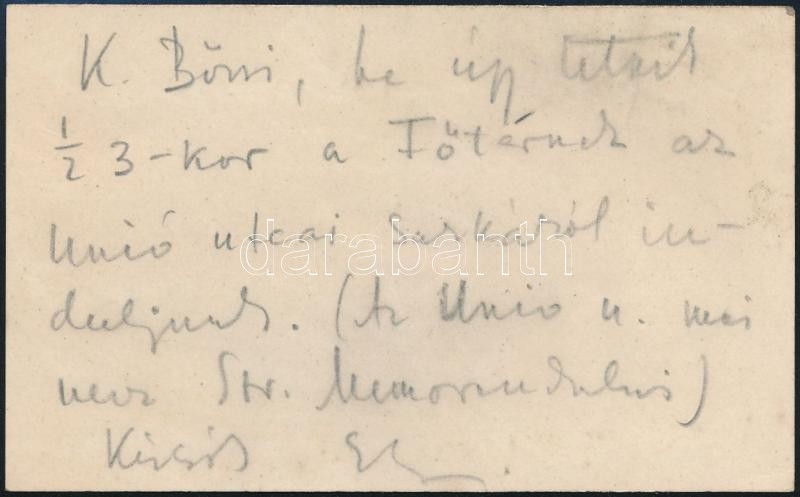 K. Böni, ha úgy tetszik
1/2 3-kor a Főtérnek az
Unió utcai sarkáról in-
duljunk. (Az Unio u. mai
neve Str. Memorandului)
darabanth